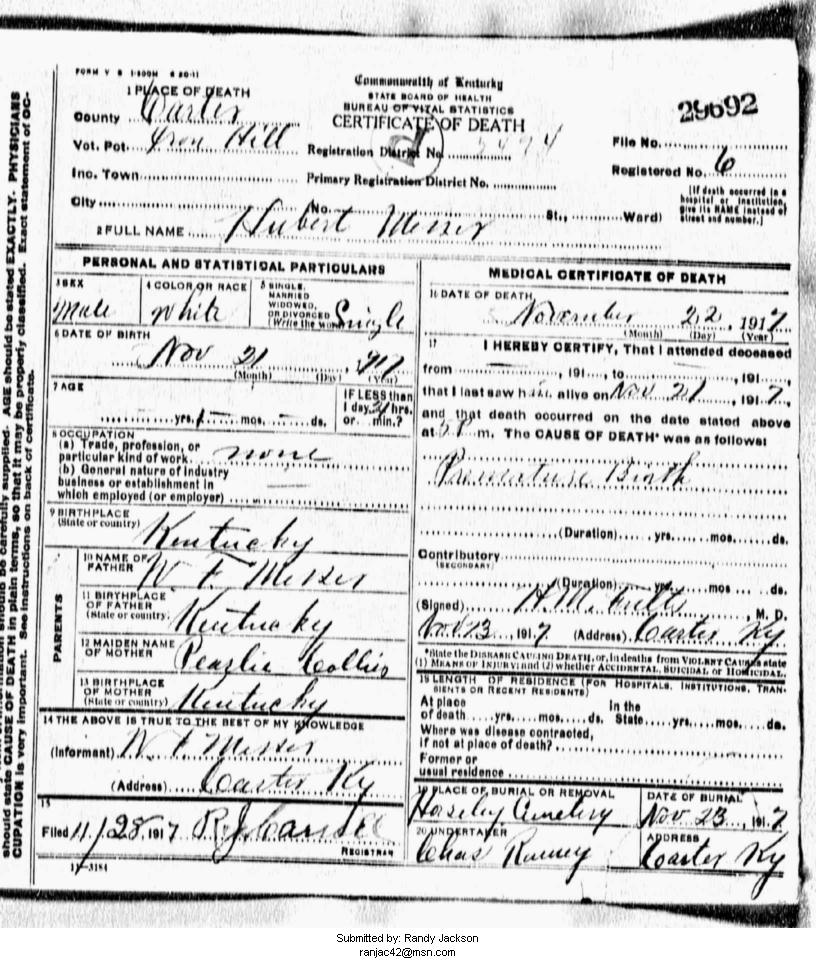 FORM V S 1-500M 6 20-11
Commonwealth of Kentucky
STATE BOARD OF HEALTH
BUREAU OF VITAL STATISTICS
CERTIFICATE OF DEATH
29692
1 PLACE OF DEATH
County Carter
Vot. Pct. Iron Hill
Registration District No.
File No.
Inc. Town
Primary Registration District No.
Registered No. 6
City
(No. St., Ward)
[If death occurred in a hospital or institution, give its NAME instead of street and number.]
2 FULL NAME Hubert Messer
PERSONAL AND STATISTICAL PARTICULARS
3 SEX
Male
4 COLOR OR RACE
White
5 SINGLE, MARRIED WIDOWED, OR DIVORCED (Write the word) Single
6 DATE OF BIRTH
Nov 21, 1917
(Month) (Day) (Year)
7 AGE
yrs. mos. ds.
IF LESS than 1 day, hrs. or min.?
8 OCCUPATION
(a) Trade, profession, or
particular kind of work none
(b) General nature of industry
business or establishment in
which employed (or employer)
9 BIRTHPLACE
(State or country) Kentucky
PARENTS
10 NAME OF FATHER W F Messer
11 BIRTHPLACE OF FATHER (State or country) Kentucky
12 MAIDEN NAME OF MOTHER Pearlie Collins
13 BIRTHPLACE OF MOTHER (State or country) Kentucky
14 THE ABOVE IS TRUE TO THE BEST OF MY KNOWLEDGE
(Informant) W F Messer
(Address) Carter Ky
15
Filed 11/28 1917
REGISTRAR
11-3184
MEDICAL CERTIFICATE OF DEATH
16 DATE OF DEATH
November 22, 1917
(Month) (Day) (Year)
17 I HEREBY CERTIFY, That I attended deceased
from , 191 , to , 191 ,
that I last saw him alive on Nov 21, 1917,
and that death occurred on the date stated above
at 5 P m. The CAUSE OF DEATH* was as follows:
Premature Birth
(Duration) yrs. mos. ds.
Contributory
(SECONDARY)
(Duration) yrs. mos. ds.
(Signed) H. M. M. D.
1917 (Address) Carter Ky
*State the DISEASE CAUSING DEATH, or, in deaths from VIOLENT CAUSES state
(1) MEANS OF INJURY; and (2) whether ACCIDENTAL, SUICIDAL or HOMICIDAL.
18 LENGTH OF RESIDENCE (FOR HOSPITALS, INSTITUTIONS, TRANSIENTS OR RECENT RESIDENTS)
At place of death yrs. mos. ds. In the State yrs. mos. ds.
Where was disease contracted,
if not at place of death?
Former or
usual residence
19 PLACE OF BURIAL OR REMOVAL
Horseley Cemetery
DATE OF BURIAL
Nov 23, 1917
20 UNDERTAKER
Chas
ADDRESS
Carter Ky
should be carefully supplied. AGE should be stated EXACTLY. PHYSICIANS
should state CAUSE OF DEATH in plain terms, so that it may be properly classified. Exact statement of OC-
CUPATION is very important. See instructions on back of certificate.
Submitted by: Randy Jackson
ranjac42@msn.com